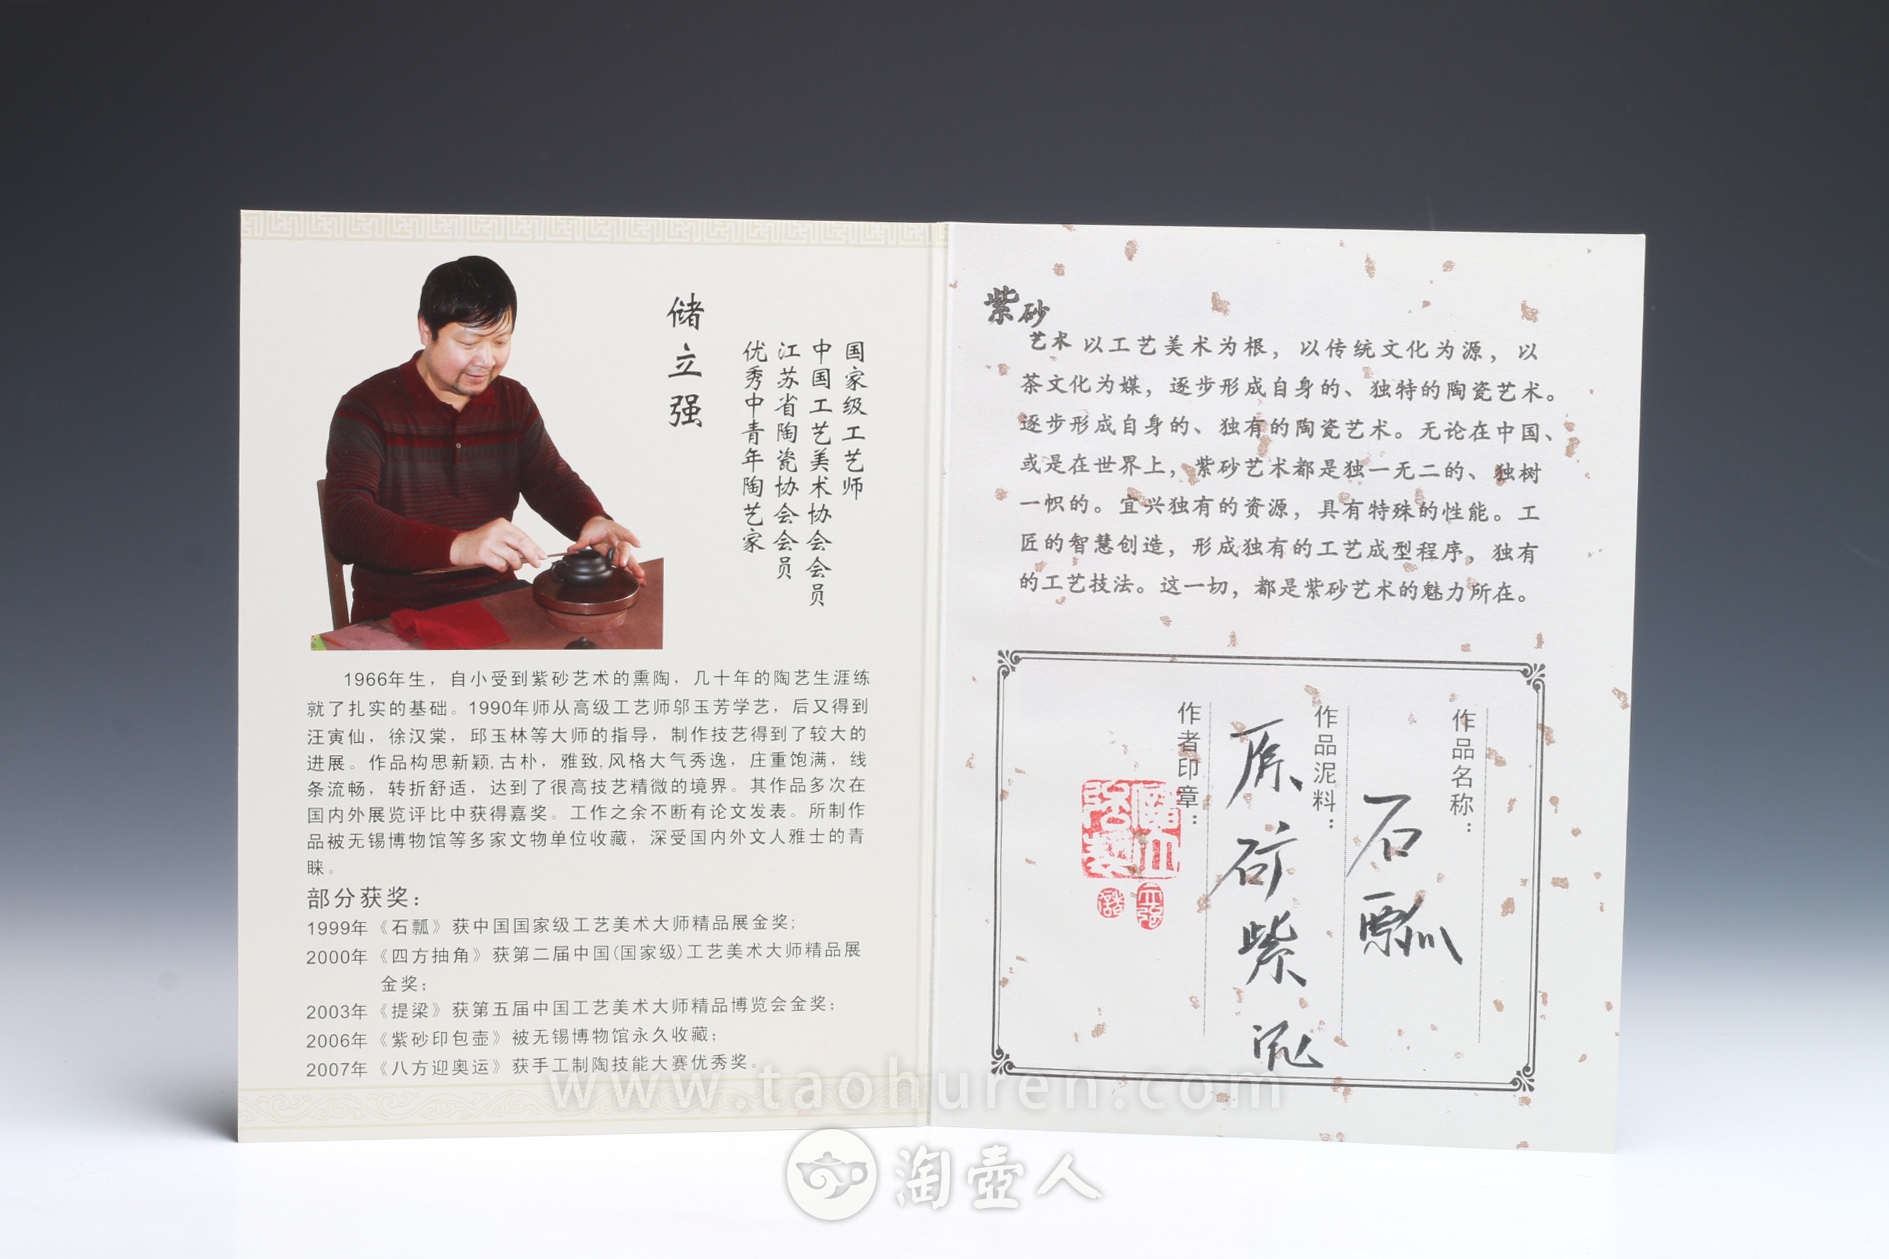 储立强
国家级工艺师
中国工艺美术协会会员
江苏省陶瓷协会会员
优秀中青年陶艺家
1966年生，自小受到紫砂艺术的熏陶，几十年的陶艺生涯练
就了扎实的基础。1990年师从高级工艺师邬玉芳学艺，后又得到
汪寅仙，徐汉棠，邱玉林等大师的指导，制作技艺得到了较大的
进展。作品构思新颖,古朴，雅致,风格大气秀逸，庄重饱满，线
条流畅，转折舒适，达到了很高技艺精微的境界。其作品多次在
国内外展览评比中获得嘉奖。工作之余不断有论文发表。所制作
品被无锡博物馆等多家文物单位收藏，深受国内外文人雅士的青
睐。
部分获奖：
1999年《石瓢》获中国国家级工艺美术大师精品展金奖；
2000年《四方抽角》获第二届中国(国家级)工艺美术大师精品展
金奖；
2003年《提梁》获第五届中国工艺美术大师精品博览会金奖；
2006年《紫砂印包壶》被无锡博物馆永久收藏；
2007年《八方迎奥运》获手工制陶技能大赛优秀奖。
紫砂
艺术 以工艺美术为根，以传统文化为源，以
茶文化为媒，逐步形成自身的、独特的陶瓷艺术。
逐步形成自身的、独有的陶瓷艺术。无论在中国、
或是在世界上，紫砂艺术都是独一无二的、独树
一帜的。宜兴独有的资源，具有特殊的性能。工
匠的智慧创造，形成独有的工艺成型程序，独有
的工艺技法。这一切，都是紫砂艺术的魅力所在。
作品名称：
石瓢
作品泥料：
原矿紫泥
作者印章：
www.taohuren.com
淘壶人